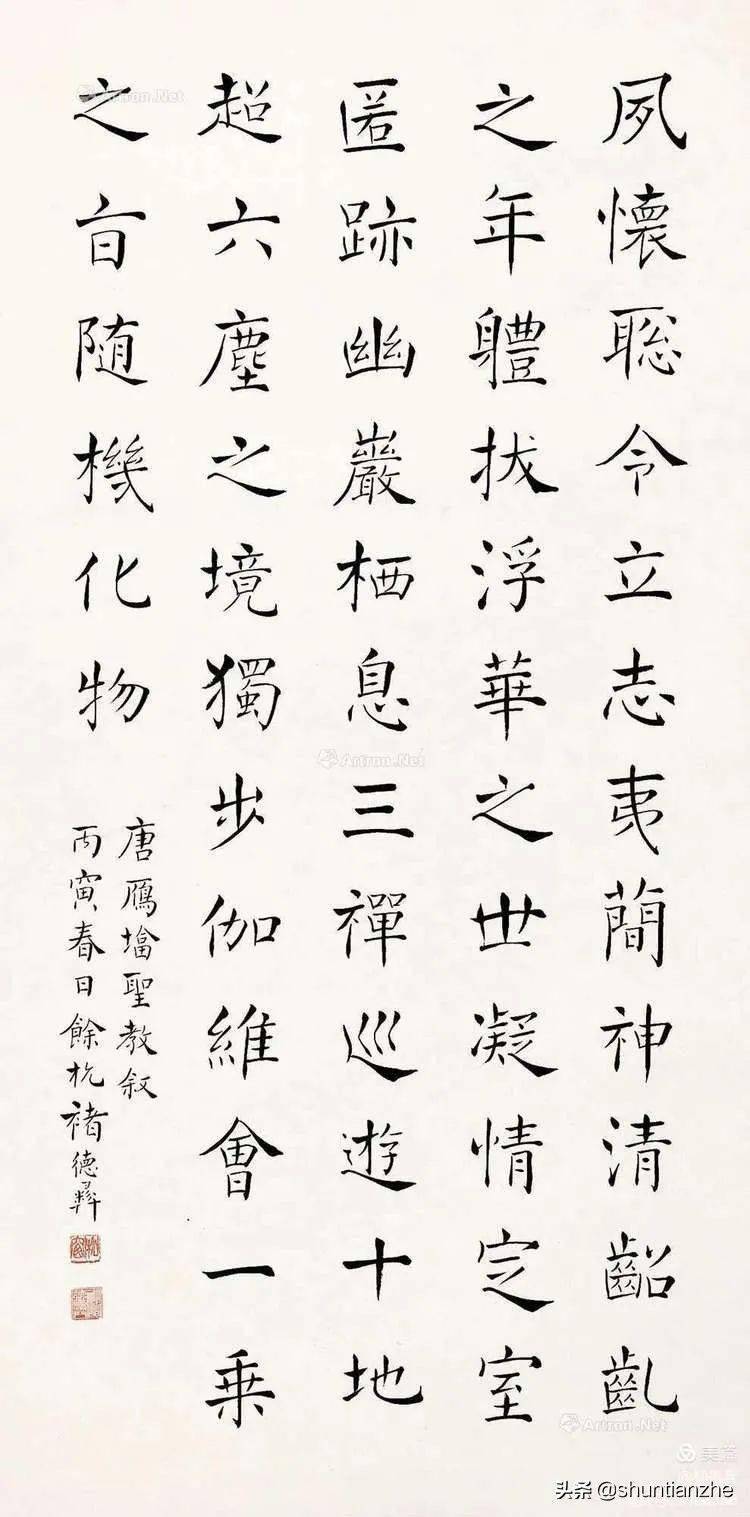 夙懷聡令立志夷簡神清齠齓
之年體拔浮華之世凝情定室
匿跡幽巖栖息三禪巡遊十地
超六塵之境獨步伽維會一乘
之旨随機化物
唐鴈塔聖教叙
丙寅春日餘杭褚德彝
Artron.Net
Artron.Net
Artron.Net
美篇
头条 @shuntianzhe